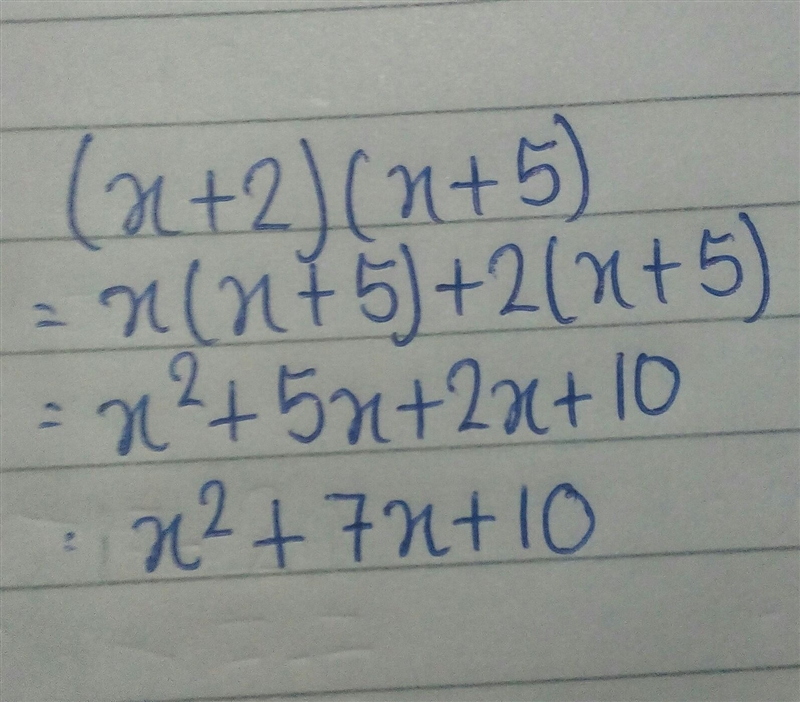 (x+2)(x+5)
= x(x+5)+2(x+5)
= x²+5x+2x+10
= x²+7x+10